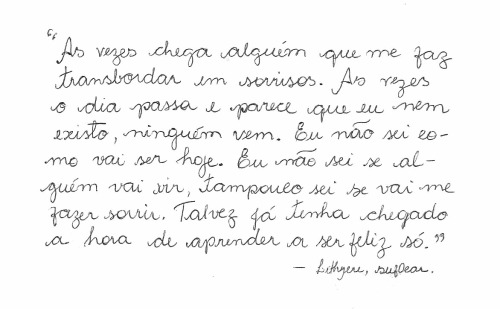 "As vezes chega alguém que me faz
transbordar em sorrisos. As vezes
o dia passa e parece que eu nem
existo, ninguém vem. Eu não sei co-
mo vai ser hoje. Eu não sei se al-
guém vai vir, tampouco sei se vai me
fazer sorrir. Talvez já tenha chegado
a hora de aprender a ser feliz só."
—